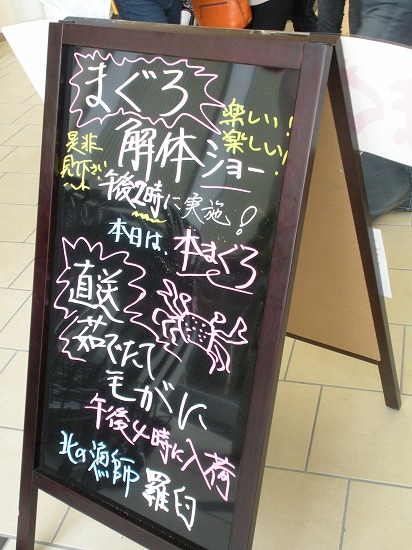 まぐろ
楽しい!
楽しい!
解体ショー
是非
見て下さい
午後2時に実施!
本日は、本まぐろ
直送
茹でたて
毛がに
午後4時に入荷
北の漁師 羅臼